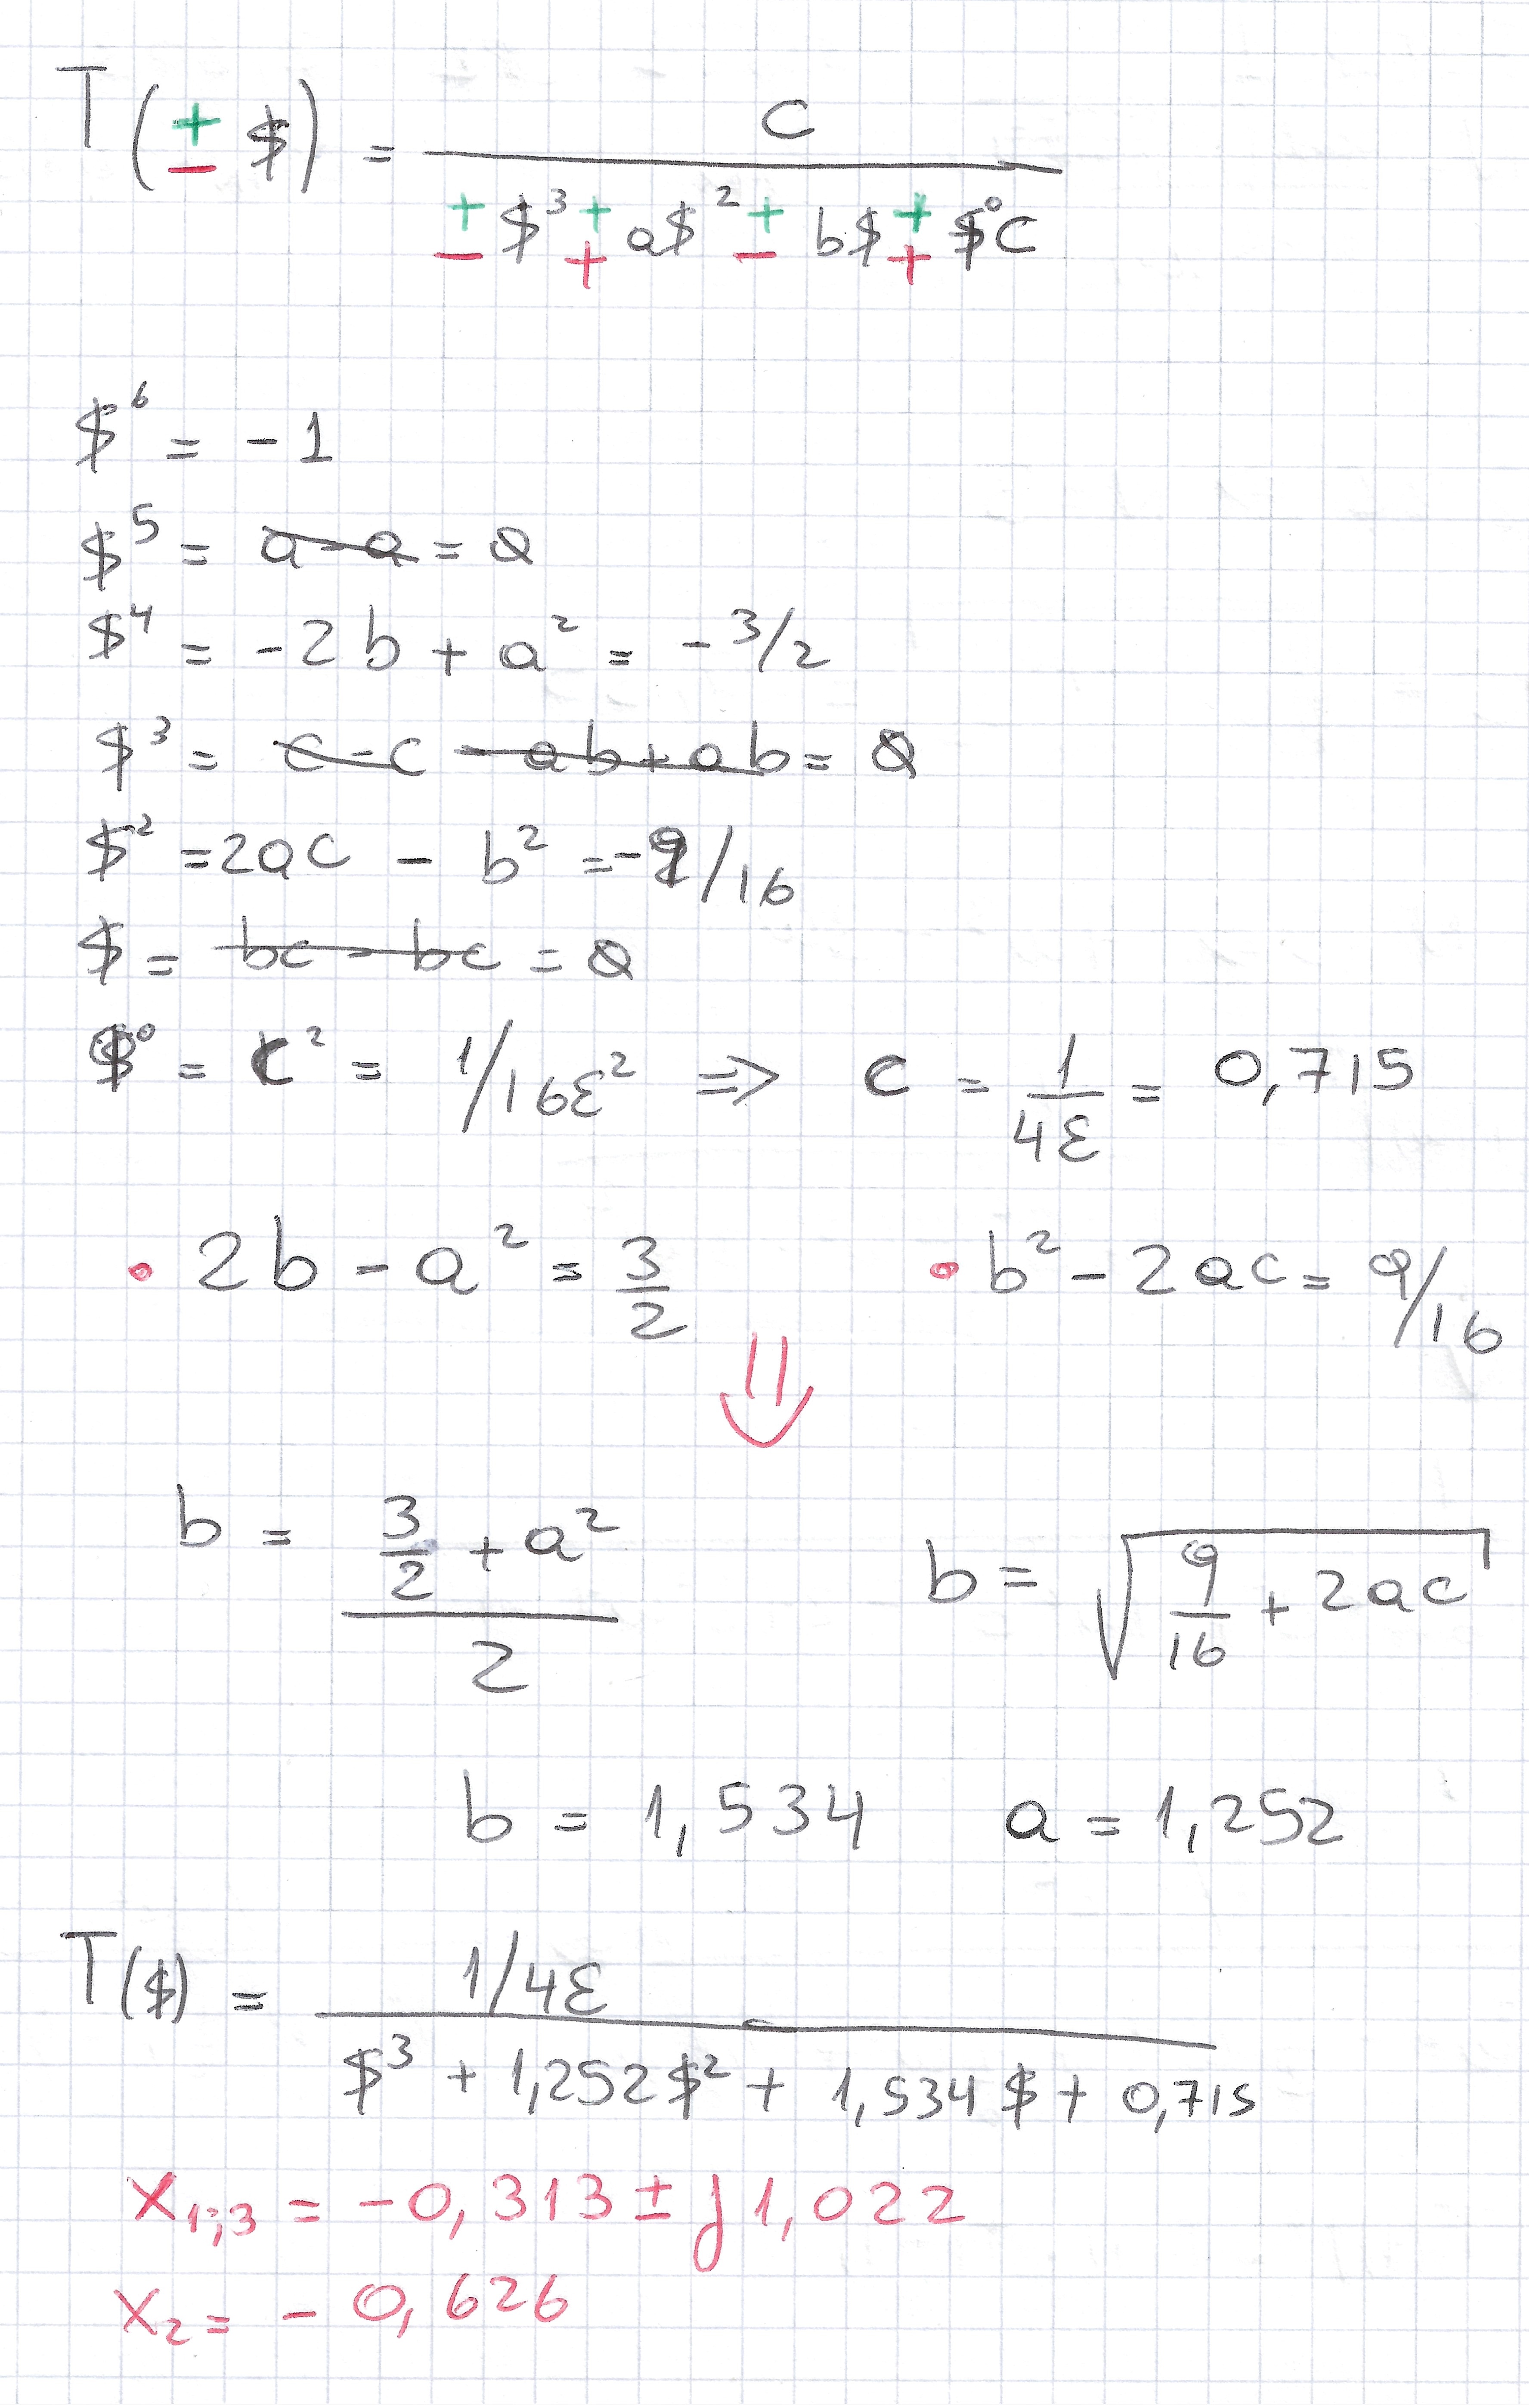 T(± $) = c / (± $³ + a$² ± b$ + $⁰c)
$⁶ = -1
$⁵ = a - a = 0
$⁴ = -2b + a² = -3/2
$³ = c - c - ab + ab = 0
$² = 2ac - b² = -9/16
$ = bc - bc = 0
$⁰ = c² = 1/16ε² ⇒ c = 1/4ε = 0,715
• 2b - a² = 3/2 • b² - 2ac = 9/16
⇓
b = (3/2 + a²)/2 b = √(9/16 + 2ac)
b = 1,534 a = 1,252
T($) = (1/4ε) / ($³ + 1,252$² + 1,534$ + 0,715)
x₁;₃ = -0,313 ± j1,022
x₂ = -0,626